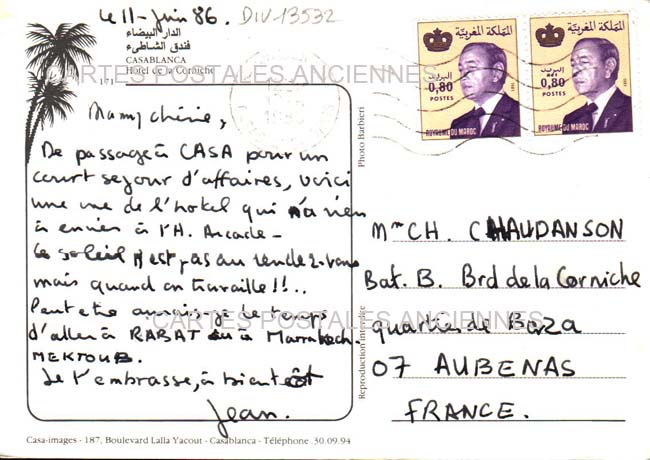 le 11-Juin 86. DIV-13532
الدار البيضاء
فندق الشاطىء
CASABLANCA
Hôtel de la Corniche
171
CARTES POSTALES ANCIENNES
Mamy chérie,
De passage à CASA pour un
court sejour d'affaires, voici
une vue de l'hotel qui n'a rien
à envier à l'H. Arcade-
Le soleil n'est pas au rendez-vous
mais quand on travaille!!..
Peut etre aurais-je le temps
d'aller à RABAT ou à Marrakech-
MEKTOUB.
Je t'embrasse, à bientôt
Jean.
Photo Barbieri
Reproduction interdite
المملكة المغربية
البريد
0,80
POSTES
ROYAUME DU MAROC
المملكة المغربية
البريد
0,80
POSTES
ROYAUME DU MAROC
Mme CH. CHAUDANSON
Bat. B. Brd de la Corniche
quartier de Baza
07 AUBENAS
FRANCE.
CARTES POSTALES ANCIENNES
Casa-images - 187, Boulevard Lalla Yacout - Casablanca - Téléphone 30.09.94